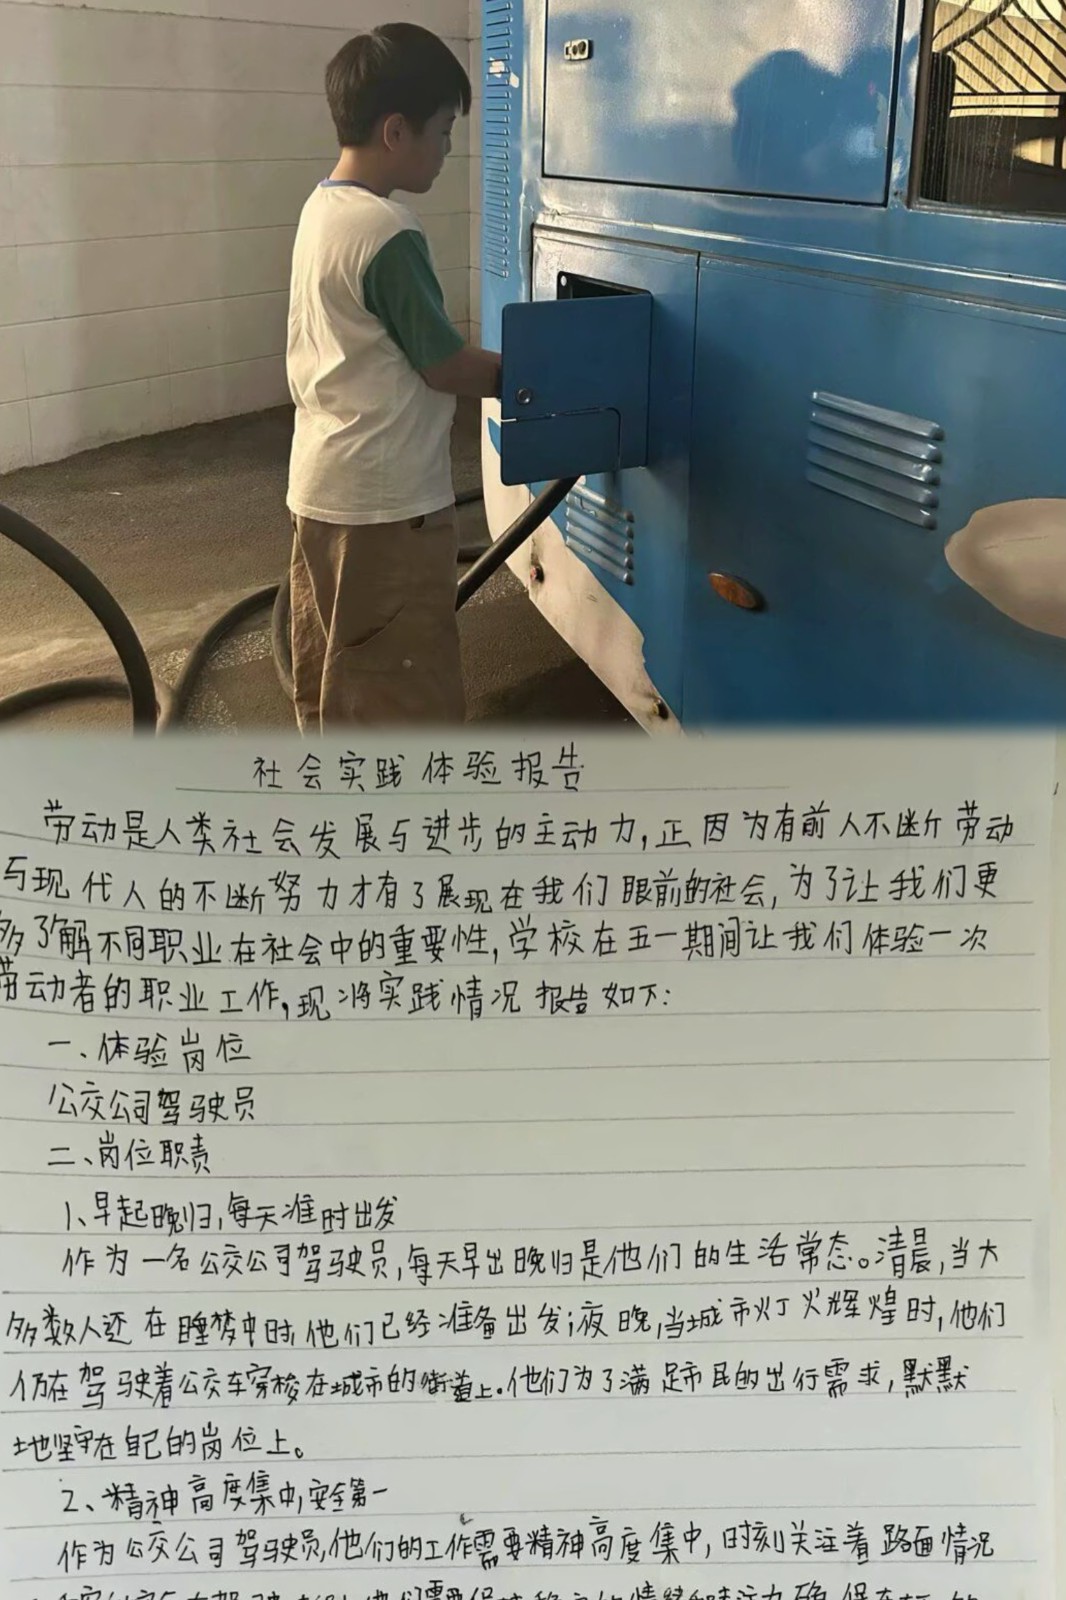 社会实践体验报告
劳动是人类社会发展与进步的主动力,正因为有前人不断劳动
与现代人的不断努力才有了展现在我们眼前的社会,为了让我们更
多了解不同职业在社会中的重要性,学校在五一期间让我们体验一次
劳动者的职业工作,现将实践情况报告如下:
一、体验岗位
公交公司驾驶员
二、岗位职责
1、早起晚归,每天准时出发
作为一名公交公司驾驶员,每天早出晚归是他们的生活常态。清晨,当大
多数人还在睡梦中时,他们已经准备出发;夜晚,当城市灯火辉煌时,他们
仍在驾驶着公交车穿梭在城市的街道上。他们为了满足市民的出行需求,默默
地坚守在自己的岗位上。
2、精神高度集中,安全第一
作为公交公司驾驶员,他们的工作需要精神高度集中,时刻关注着路面情况